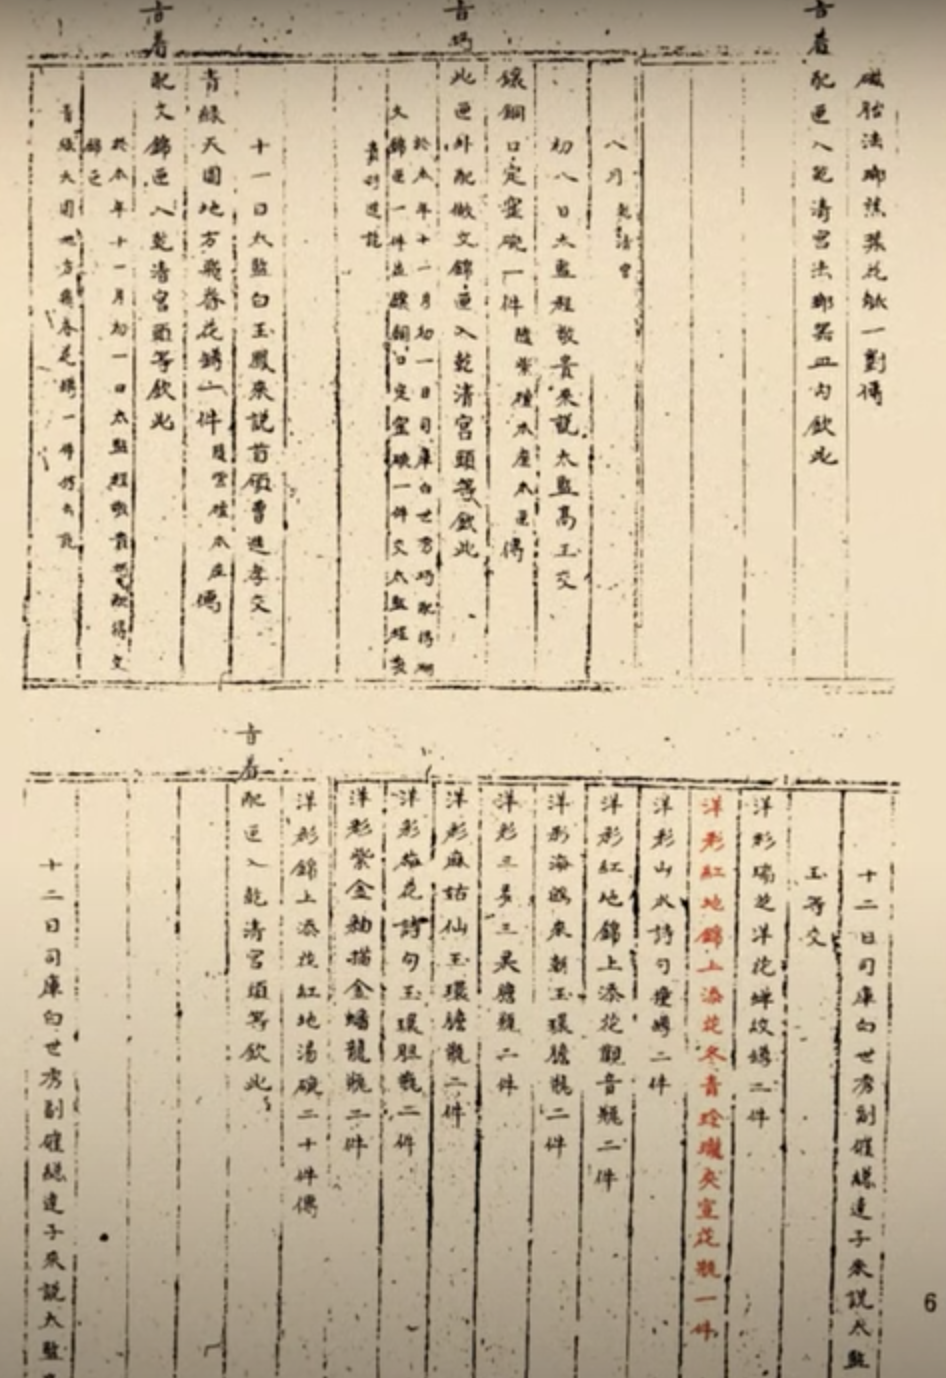 磁胎法瑯蕉葉花觚一對傳
旨着配匣入乾清宮法瑯器皿內欽此
八月 乾清宮
初八日太監程敬貴來說太監高玉交
鑲銅口定窰碗一件 隨紫檀木座木匣 傳
旨將此匣外配做文錦匣入乾清宮頭等欽此
於本年十一月初一日司庫白世秀將配得
文錦匣一件並鑲銅口定窰碗一件交太監程敬
貴訖
十一日太監白玉鳳來說首領曹進孝交
青綠天圓地方飛脊花罇一件 隨紫檀木座 傳
旨着配文錦匣入乾清宮頭等欽此
於本年十一月初一日太監程敬貴將配得文
錦匣
青綠天圓地方飛脊花罇一件持去訖
十二日司庫白世秀副催總達子來說太監
玉等交
洋彩瑞芝洋花蟬紋罇二件
洋彩紅地錦上添花冬青玲瓏夾宣花瓶一件
洋彩山水詩句瘦罇二件
洋彩紅地錦上添花觀音瓶二件
洋彩海鶴來朝玉環膽瓶二件
洋彩三多三果膽瓶二件
洋彩麻姑仙玉環膽瓶二件
洋彩梅花詩句玉環胆瓶二件
洋彩紫金釉描金蟠龍瓶二件
洋彩錦上添花紅地湯碗二十件傳
旨着配匣入乾清宮頭等欽此
十二日司庫白世秀副催總達子來說太監
6